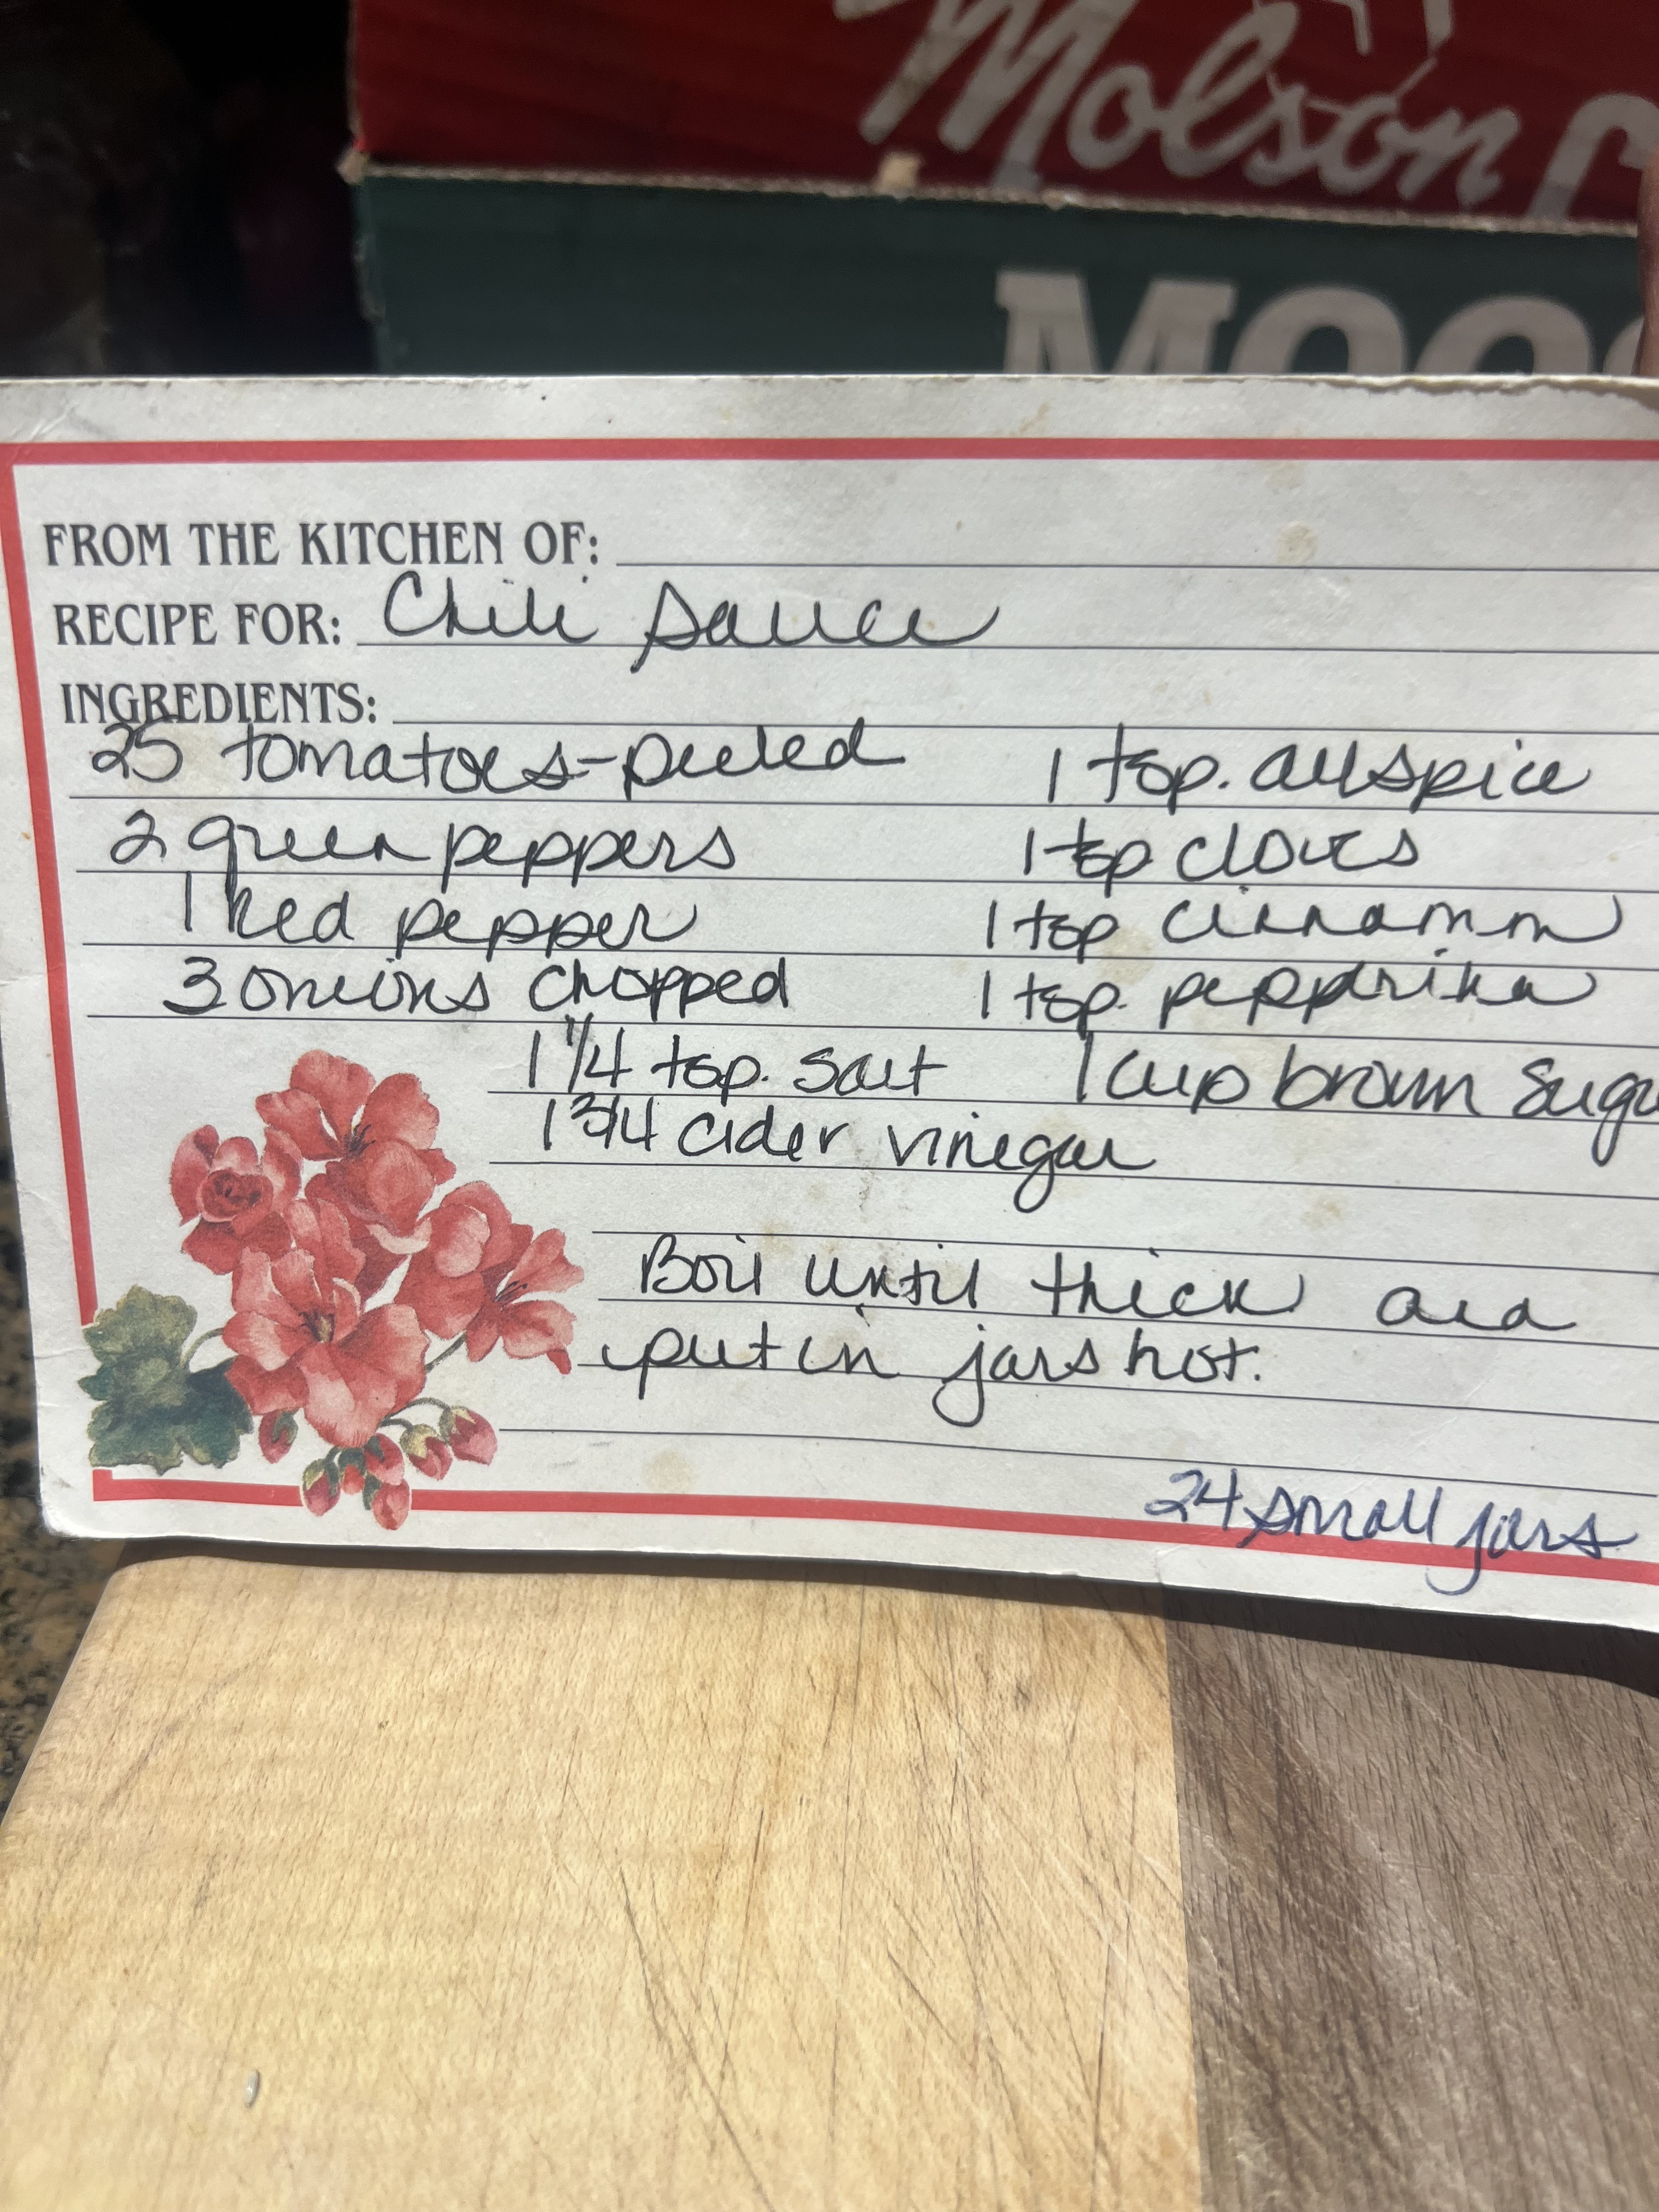 Molson
MOOS
FROM THE KITCHEN OF:
RECIPE FOR: Chili Sauce
INGREDIENTS:
25 tomatoes-peeled 1 tsp. allspice
2 green peppers 1 tsp cloves
1 Red pepper 1 tsp cinnamon
3 onions chopped 1 tsp. peppdrika
1 1/4 tsp. salt 1 cup brown suga
1 3/4 cider vinegar
Boil until thick and
put in jars hot.
24 small jars